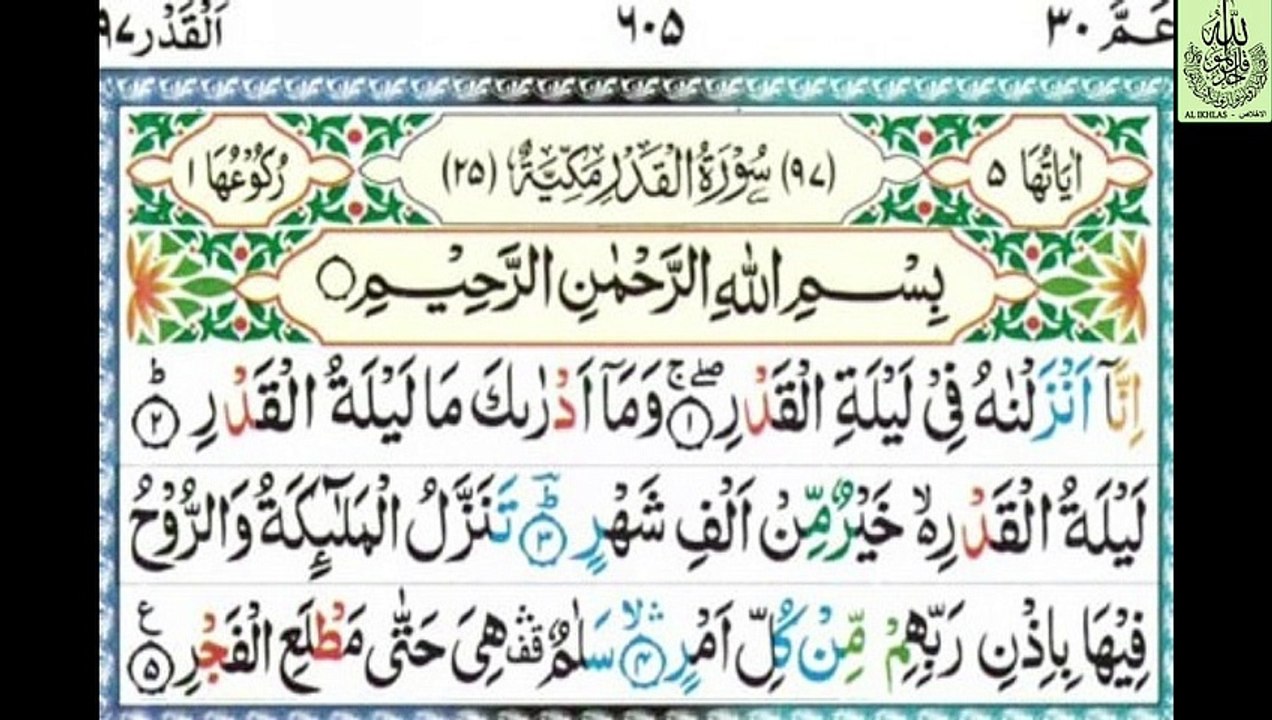 عَمَّ ٣٠
٦٠٥
اَلْقَدْر ٩٧
AL IKHLAS - الاخلاص
اٰيَاتُهَا ٥
(٩٧) سُوْرَةُ الْقَدْرِ مَكِّيَّةٌ (٢٥)
رُكُوْعُهَا ١
بِسْمِ اللّٰهِ الرَّحْمٰنِ الرَّحِيْمِ ۝
اِنَّآ اَنْزَلْنٰهُ فِيْ لَيْلَةِ الْقَدْرِ ۝١ۖۚ وَمَآ اَدْرٰىكَ مَا لَيْلَةُ الْقَدْرِ ۝٢ؕ
لَيْلَةُ الْقَدْرِ ە ۙ خَيْرٌ مِّنْ اَلْفِ شَهْرٍ ۝٣ؕ تَنَزَّلُ الْمَلٰٓئِكَةُ وَالرُّوْحُ
فِيْهَا بِاِذْنِ رَبِّهِمْ مِّنْ كُلِّ اَمْرٍ ۝٤ۙۛ سَلٰمٌ ۛقف هِيَ حَتّٰى مَطْلَعِ الْفَجْرِ ۝٥ ع